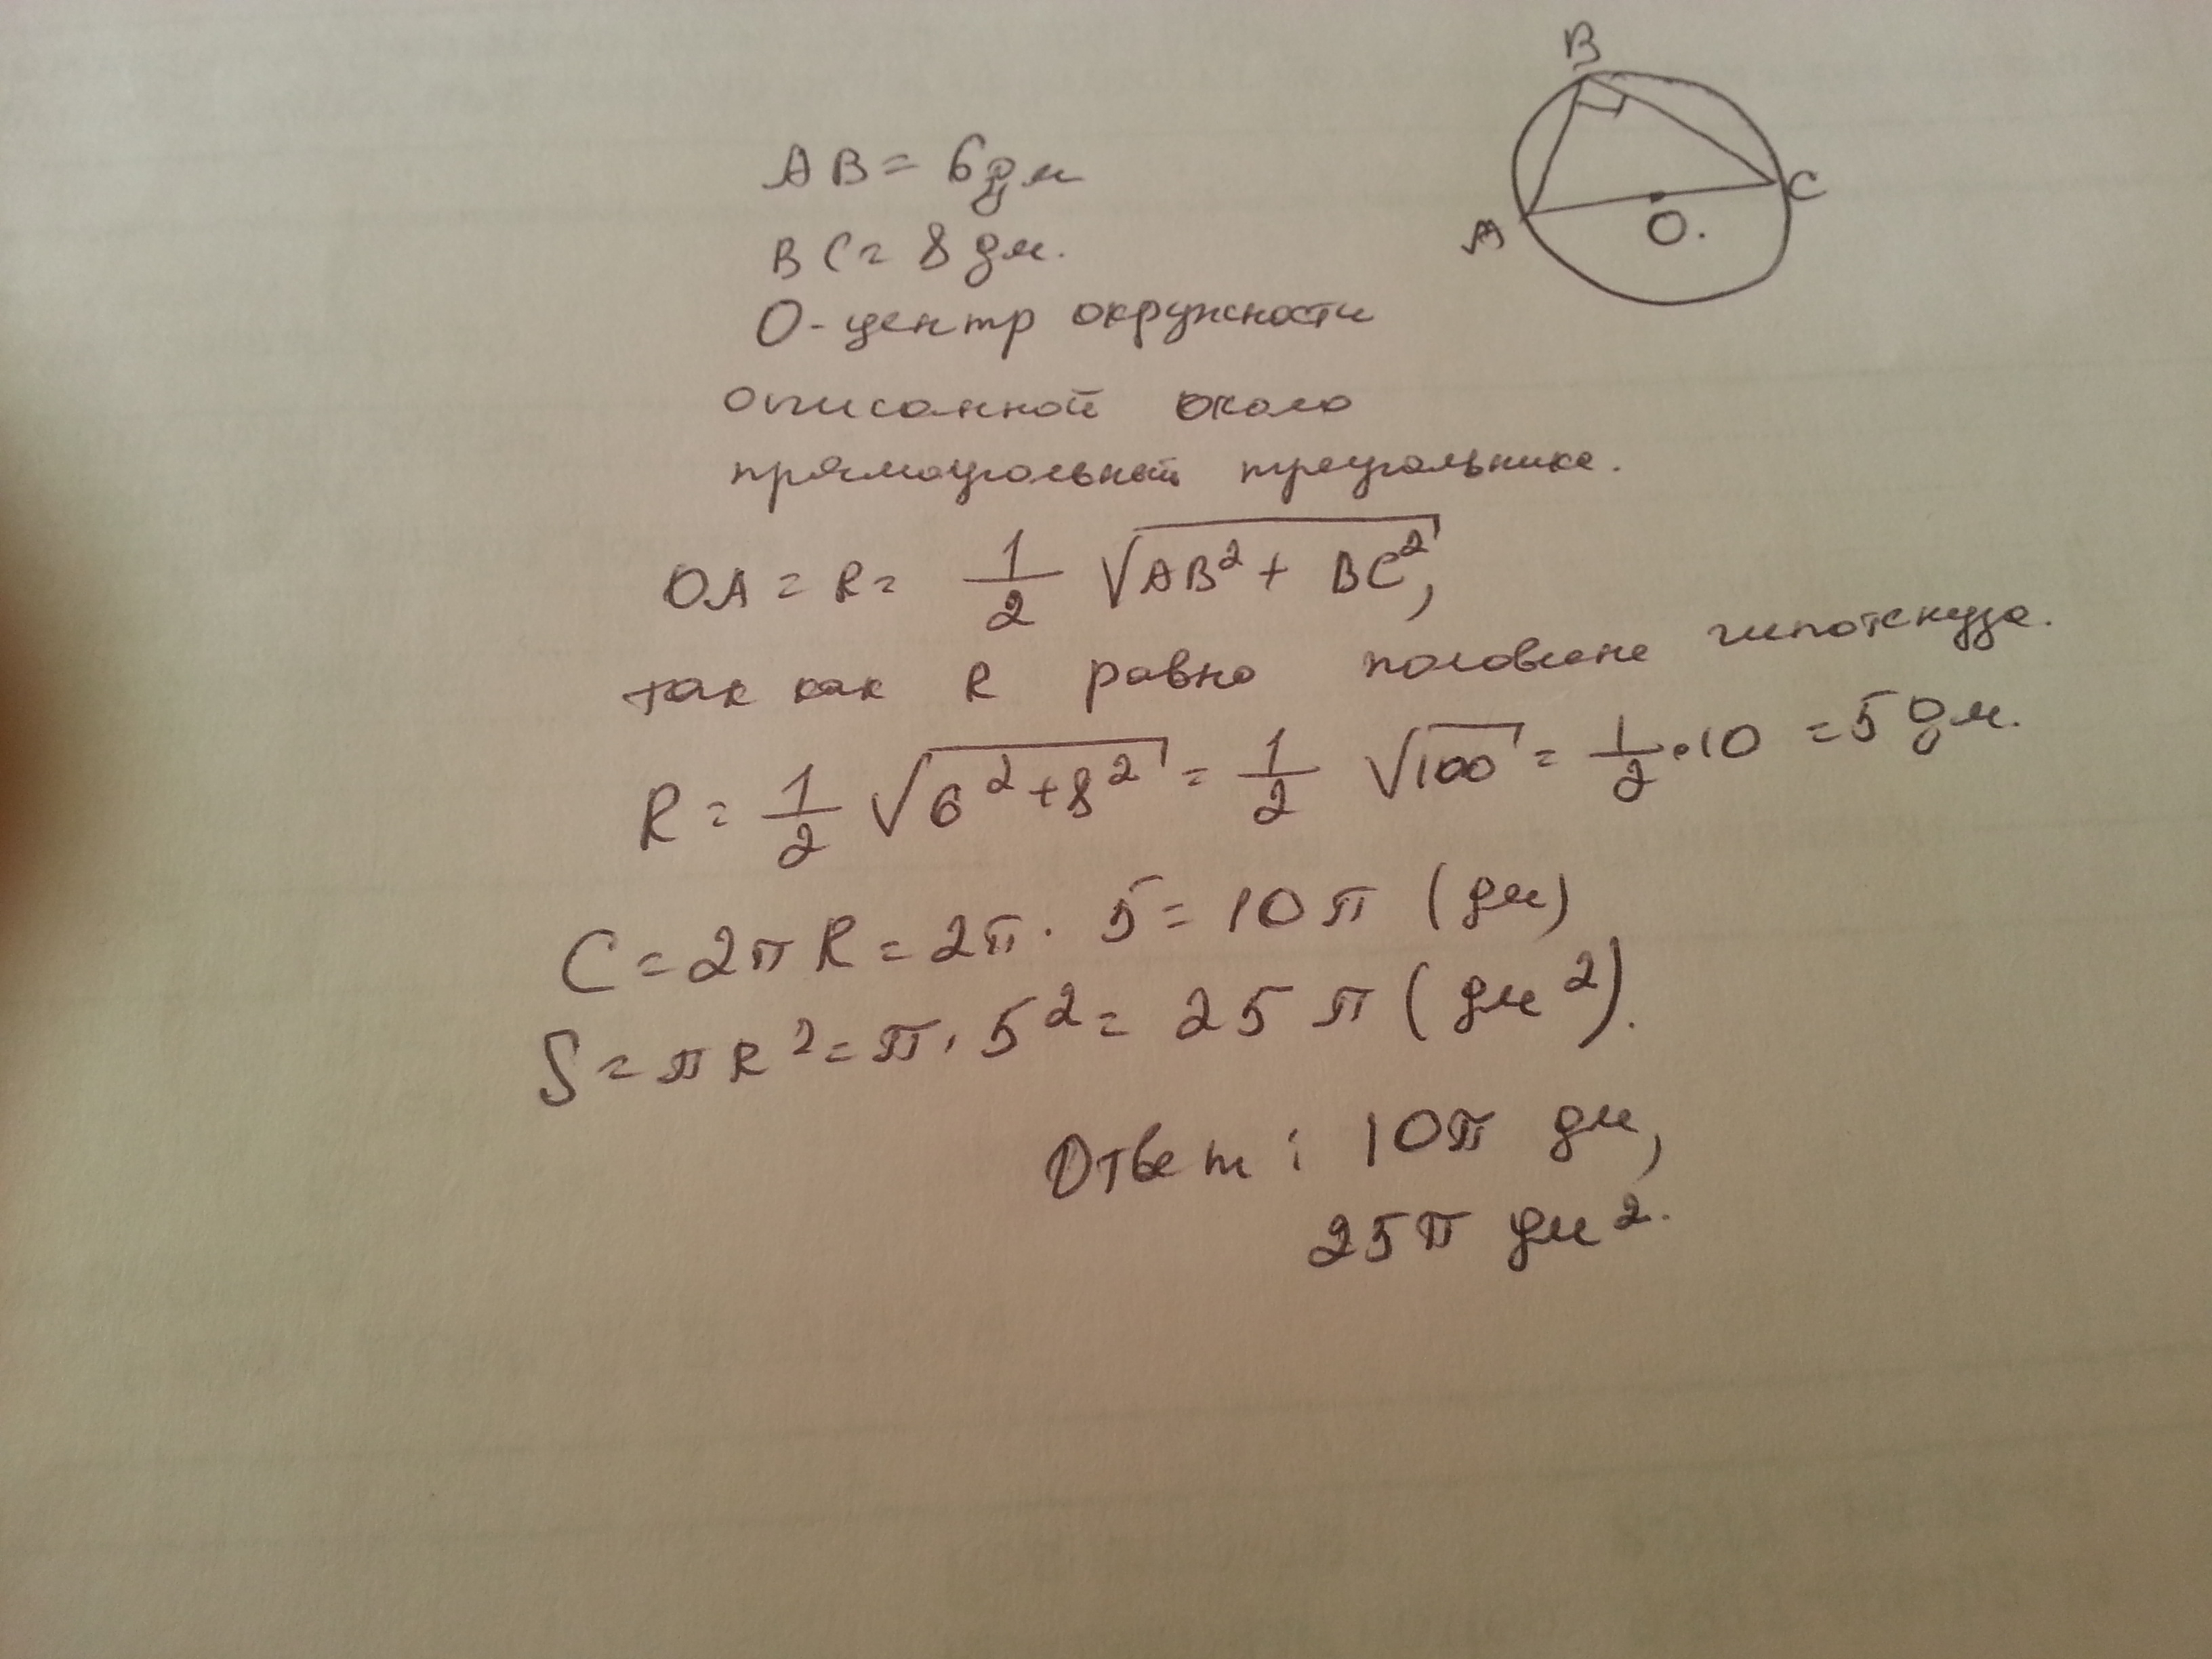 B
A
C
O.
AB = 6 дм
BC = 8 дм.
O - центр окружности
описанной около
прямоугольный треугольнике.
OA = R = 1/2 √(AB² + BC²),
так как R равно половине гипотенузе.
R = 1/2 √(6² + 8²) = 1/2 √100 = 1/2 • 10 = 5 дм.
C = 2π R = 2π · 5 = 10π (дм)
S = π R² = π · 5² = 25 π (дм²).
Ответ : 10π дм,
25π дм².